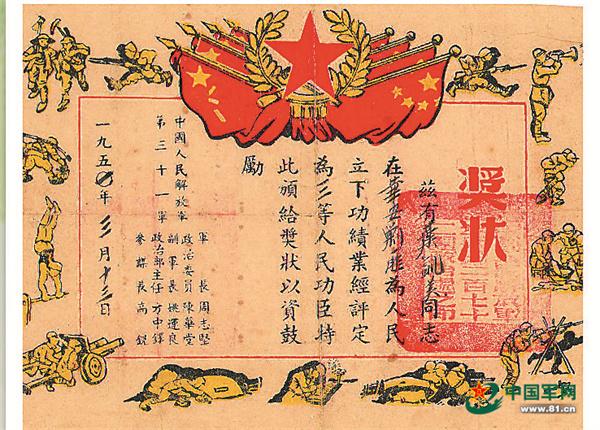 獎狀
茲有葉同志
在剿匪為人民
立下功績業經評定
為三等人民功臣持
此頒給獎狀以資鼓
勵
中國人民解放軍
第三十一軍
軍長周志堅
政治委員陳華堂
副軍長姚運良
政治部主任方中鐸
參謀長高銳
一九五〇年三月十三日
中国军网
www.81.cn